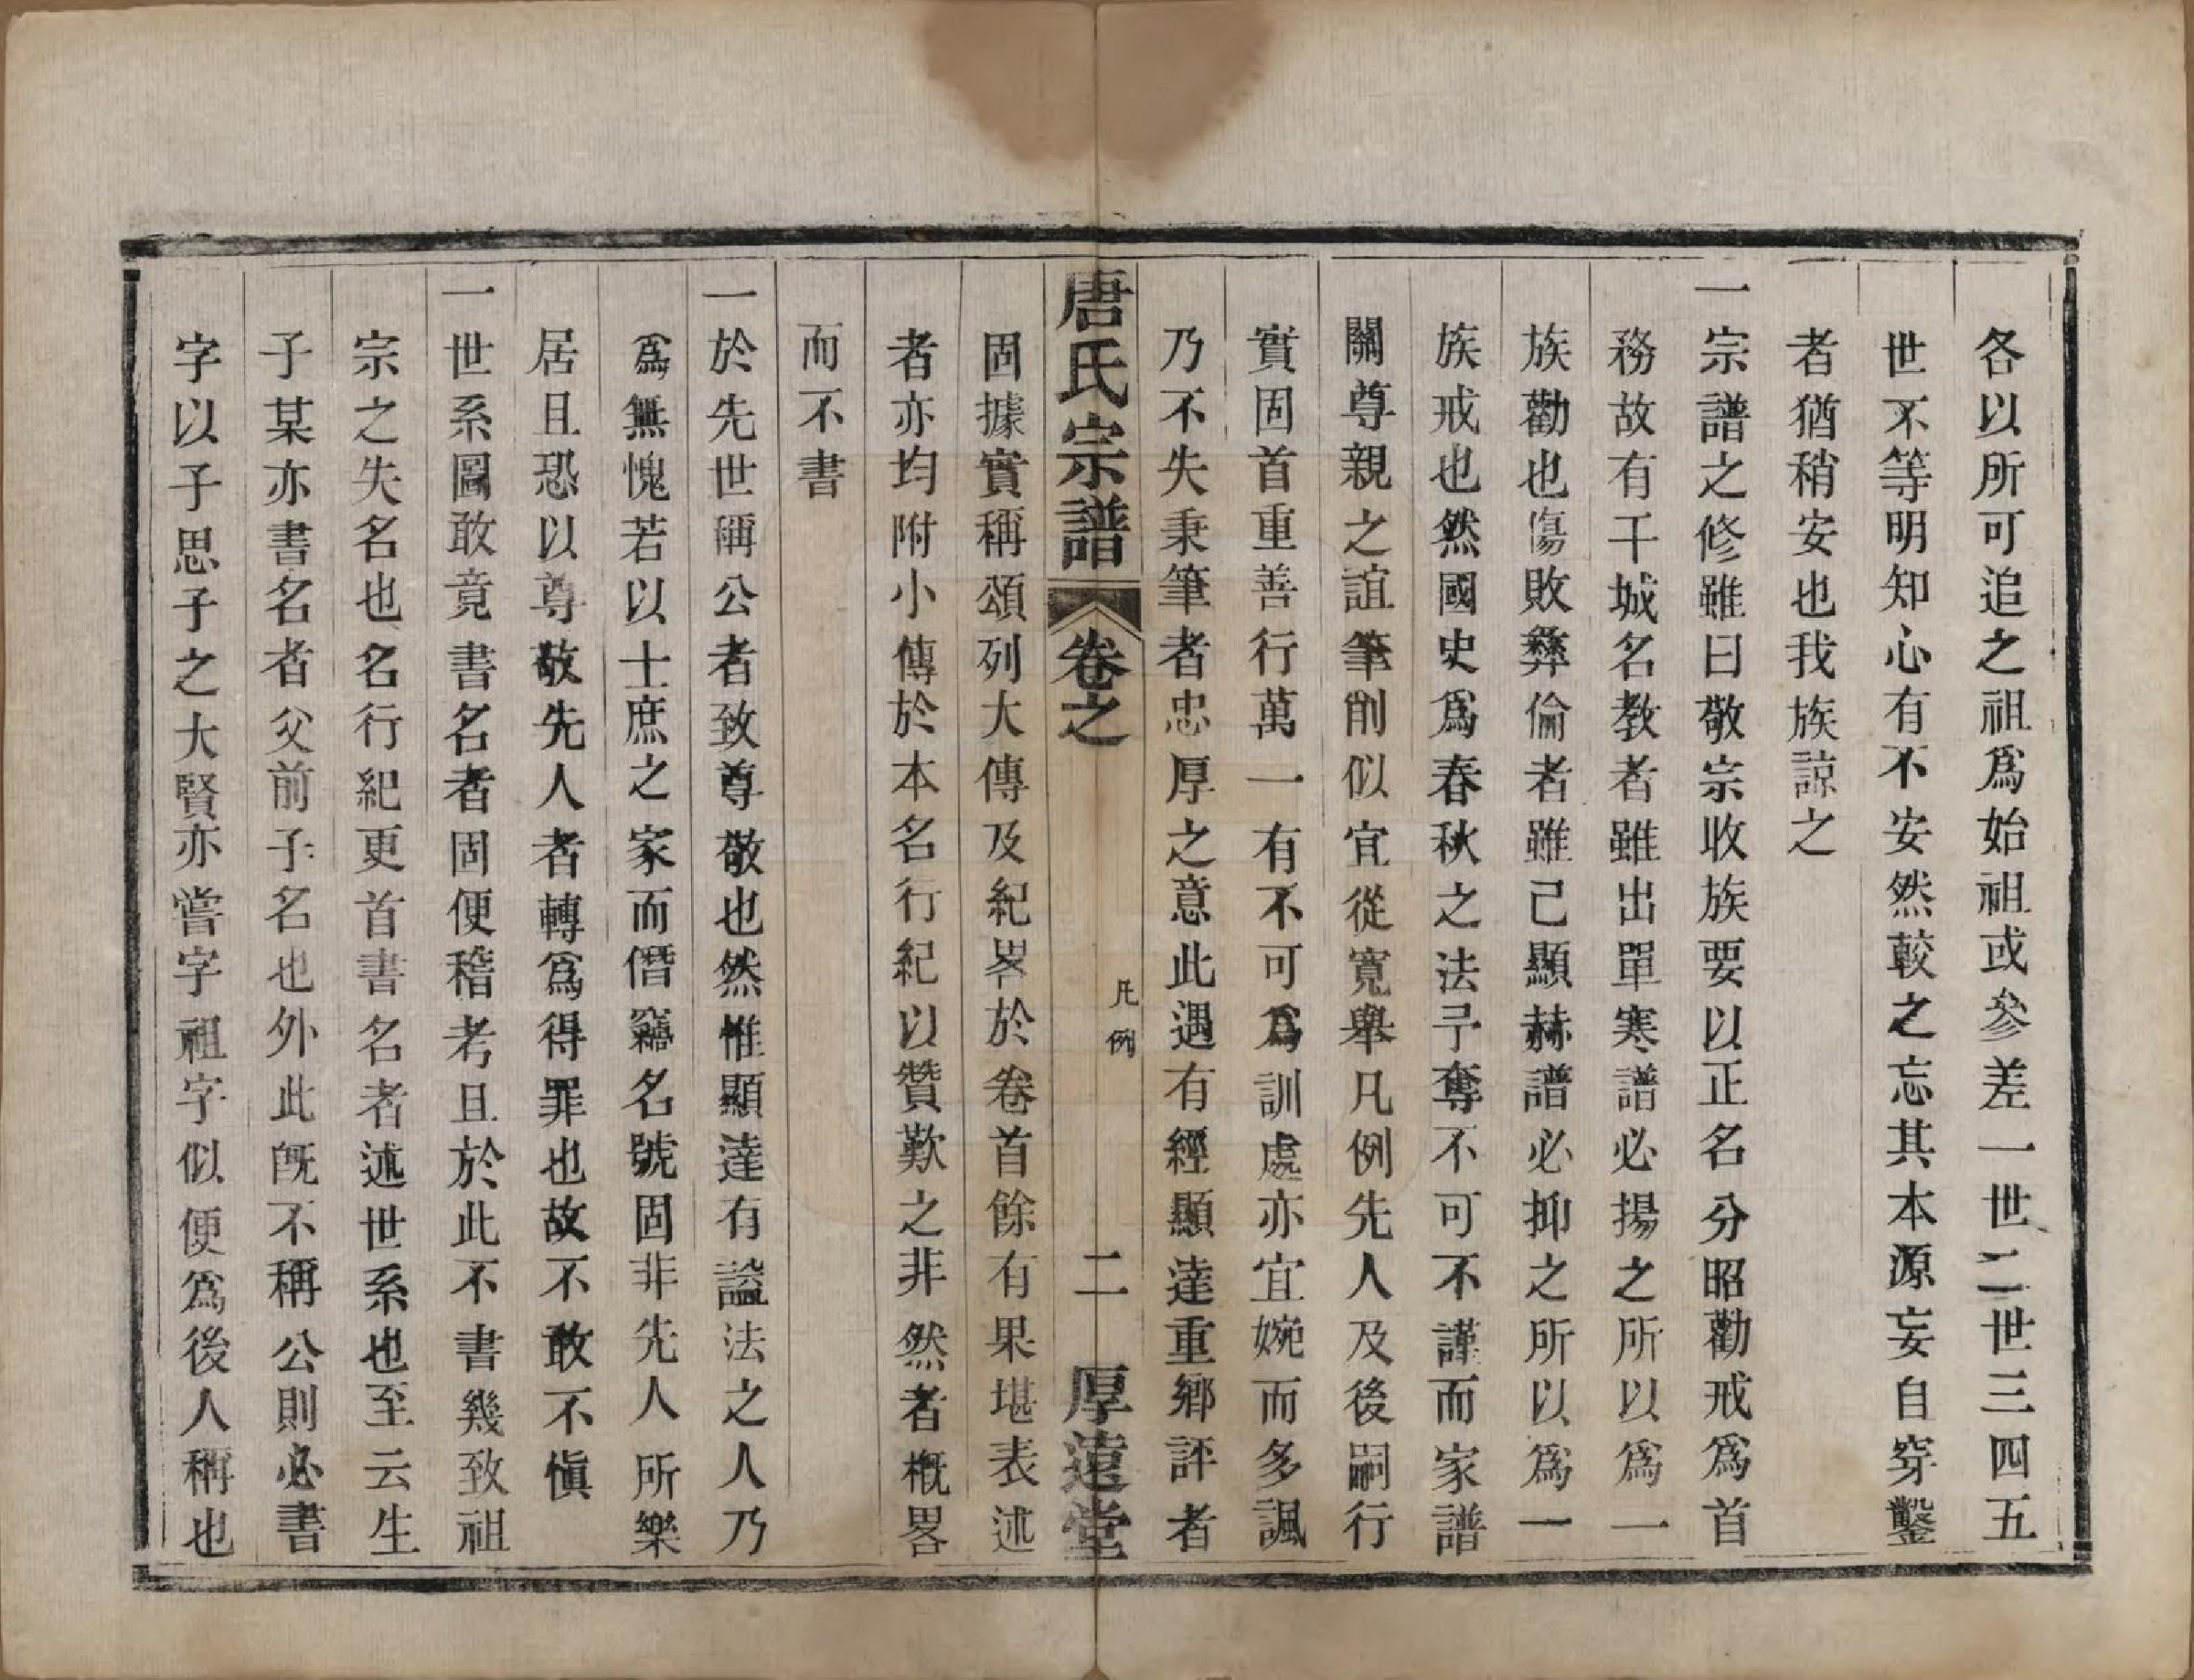 各以所可追之祖爲始祖或參差一世二世三四五
世不等明知心有不安然較之忘其本源妄自穿鑿
者猶稍安也我族諒之
一宗譜之修雖曰敬宗收族要以正名分昭勸戒爲首
務故有干城名教者雖出單寒譜必揚之所以爲一
族勸也傷敗彝倫者雖己顯赫譜必抑之所以爲一
族戒也然國史爲春秋之法予奪不可不謹而家譜
關尊親之誼筆削似宜從寬舉凡例先人及後嗣行
實固首重善行萬一有不可爲訓處亦宜婉而多諷
乃不失秉筆者忠厚之意此遇有經顯達重鄉評者
唐氏宗譜 卷之 凡例 二 厚遠堂
固據實稱頌列大傳及紀畧於卷首餘有果堪表述
者亦均附小傳於本名行紀以贊歎之非然者概畧
而不書
一於先世稱公者致尊敬也然惟顯達有諡法之人乃
爲無愧若以士庶之家而僭竊名號固非先人所樂
居且恐以尊敬先人者轉爲得罪也故不敢不愼
一世系圖敢竟書名者固便稽考且於此不書幾致祖
宗之失名也名行紀更首書名者述世系也至云生
子某亦書名者父前子名也外此旣不稱公則必書
字以子思子之大賢亦嘗字祖字似便爲後人稱也